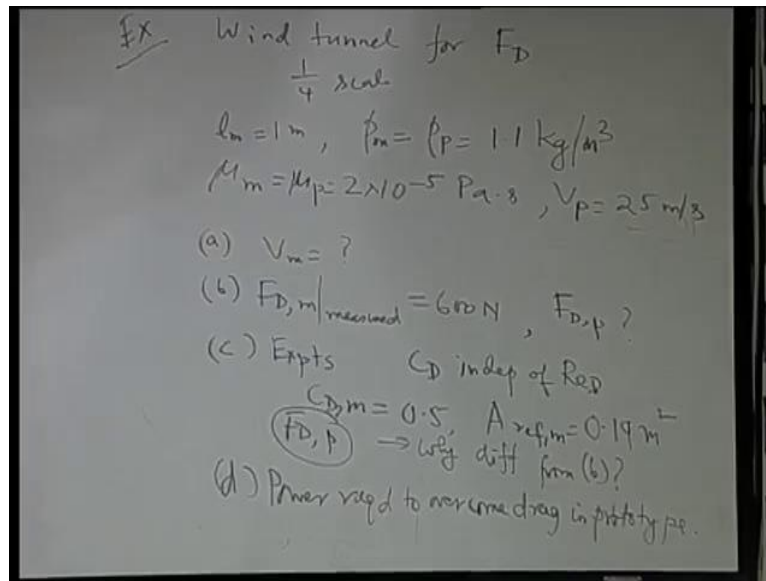 Ex Wind tunnel for F_D
1/4 scale
l_m = 1 m, ρ_m = ρ_p = 1.1 kg/m³
μ_m = μ_p = 2×10⁻⁵ Pa·s, V_p = 25 m/s
(a) V_m = ?
(b) F_D,m|measured = 600 N, F_D,p ?
(c) Expts C_D indep of Re_D
C_D,m = 0.5, A_ref,m = 0.19 m²
F_D,p → why diff from (b)?
(d) Power reqd to overcome drag in prototype.